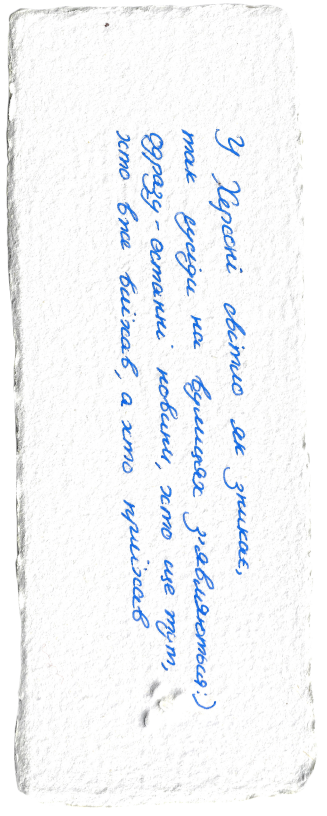 У Херсоні світло як зникає,
так сусіди на вулицях з'являються:)
одразу - останні новини, хто ще тут,
хто вже виїхав, а хто приїхав